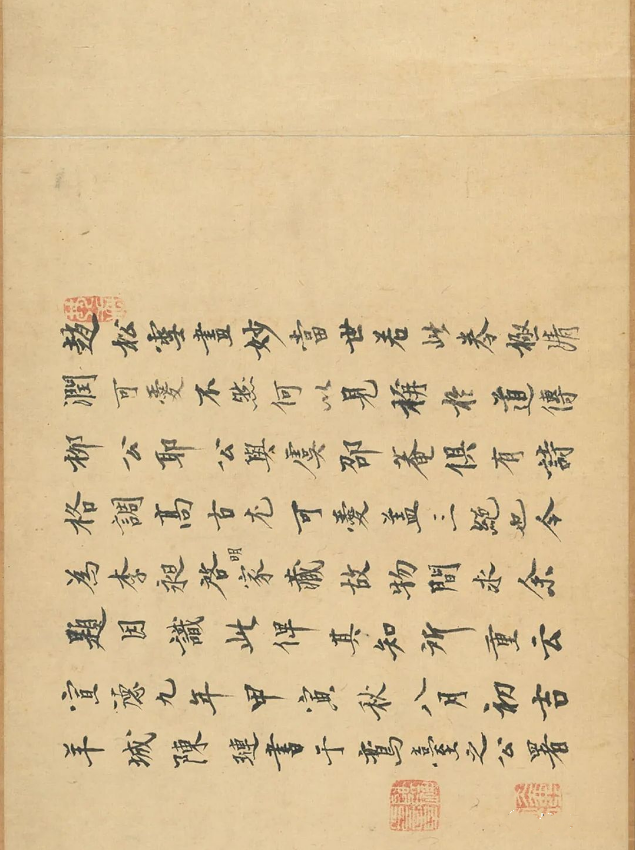 趙松雪畫妙當世若此卷極清
潤可愛不然何以見稱於道傳
柳公耶公與虞邵菴俱有詩
格調高古尤可愛蓋三絕也今
為李昶啓明家藏故物間求余
題因識此俾其知所重云
宣德九年甲寅秋八月初吉
羊城陳璉書于臺之公署